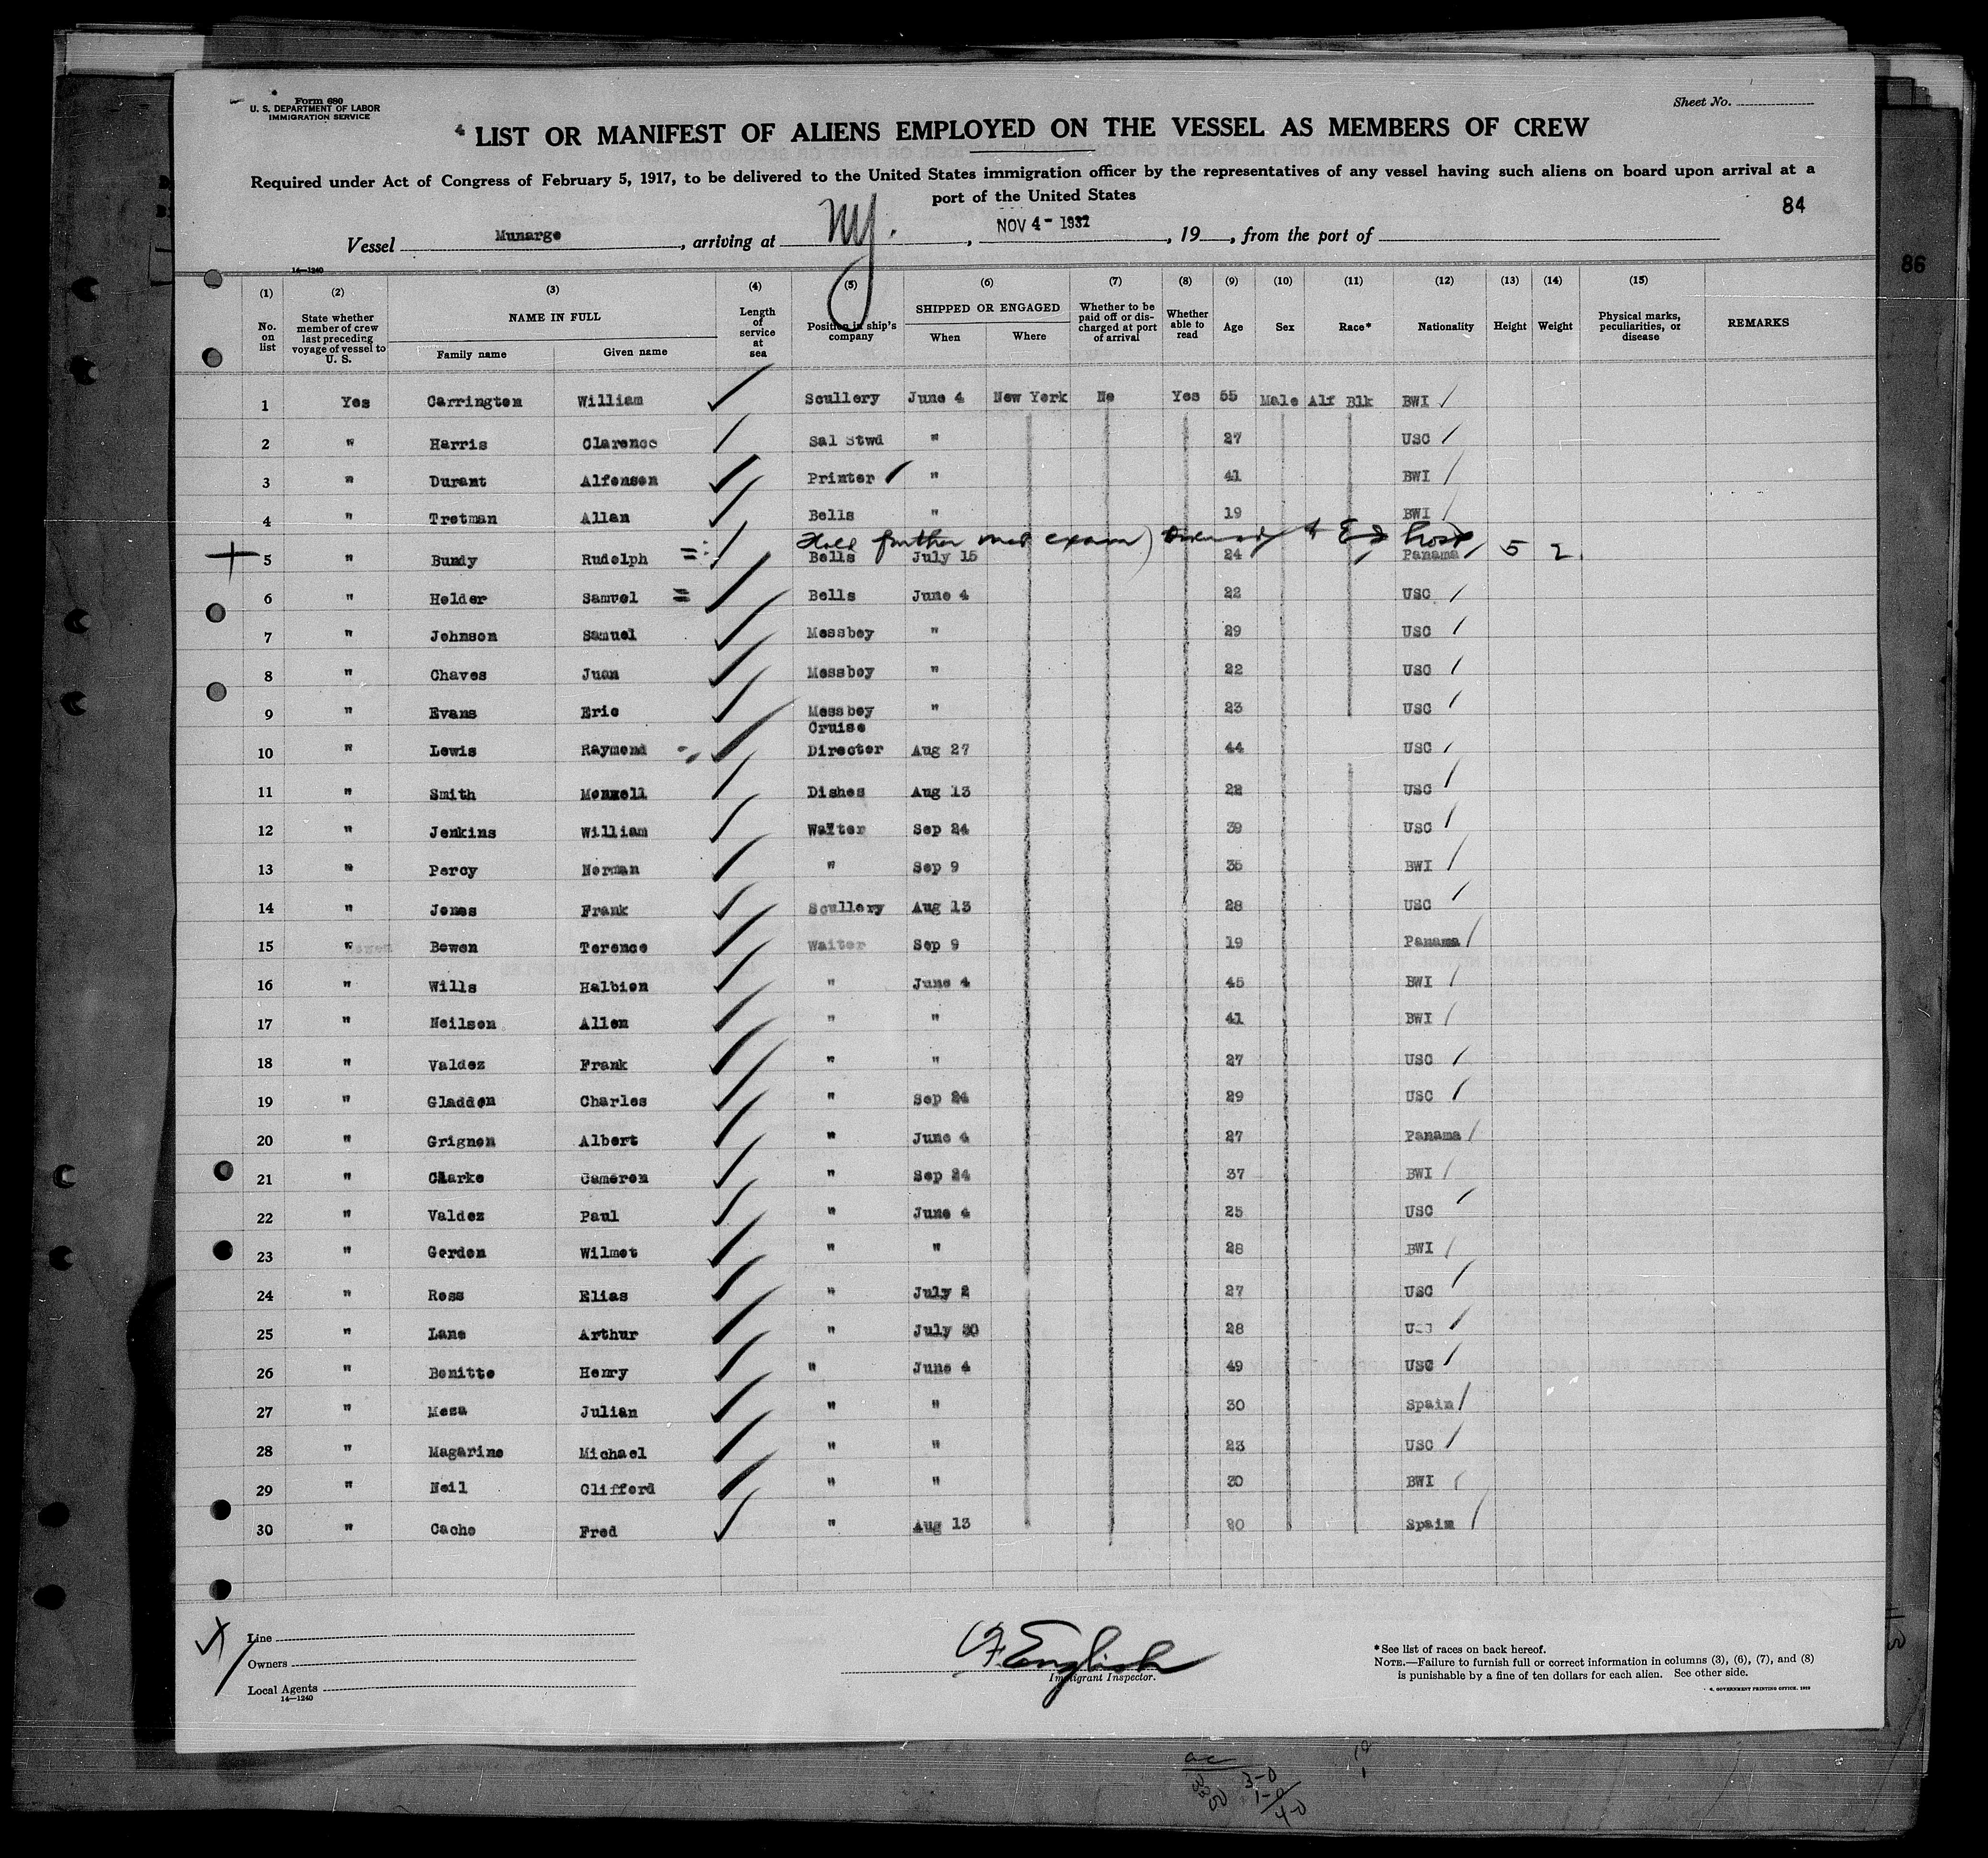 Form 680
U. S. DEPARTMENT OF LABOR
IMMIGRATION SERVICE
Sheet No.
LIST OR MANIFEST OF ALIENS EMPLOYED ON THE VESSEL AS MEMBERS OF CREW
Required under Act of Congress of February 5, 1917, to be delivered to the United States immigration officer by the representatives of any vessel having such aliens on board upon arrival at a
port of the United States
84
Vessel Munargo, arriving at NY., NOV 4- 1932, 19, from the port of
86
14—1240
(1) (2) (3) (4) (5) (6) (7) (8) (9) (10) (11) (12) (13) (14) (15)
No. on list State whether member of crew last preceding voyage of vessel to U. S. NAME IN FULL Family name Given name Length of service at sea Position in ship's company SHIPPED OR ENGAGED When Where Whether to be paid off or discharged at port of arrival Whether able to read Age Sex Race* Nationality Height Weight Physical marks, peculiarities, or disease REMARKS
1 Yes Carrington William Scullery June 4 New York No Yes 55 Male Alf Blk BWI
2 " Harris Clarence Sal Stwd " 27 USC
3 " Durant Alfonson Printer " 41 BWI
4 " Trotman Allan Bells " 19 BWI
Hold further med exam)
5 " Bundy Rudolph Bells July 15 24 Panama 5 2
6 " Holder Samvel Bells June 4 22 USC
7 " Johnson Samuel Messboy " 29 USC
8 " Chaves Juan Messboy " 22 USC
9 " Evans Eric Messboy " 23 USC
10 " Lewis Raymond Cruise Director Aug 27 44 USC
11 " Smith Monzell Dishes Aug 13 22 USC
12 " Jenkins William Waiter Sep 24 39 USC
13 " Percy Norman " Sep 9 35 BWI
14 " Jones Frank Scullery Aug 13 28 USC
15 " Bowen Terence Waiter Sep 9 19 Panama
16 " Wills Halbion " June 4 45 BWI
17 " Neilson Allen " " 41 BWI
18 " Valdez Frank " " 27 USC
19 " Gladden Charles " Sep 24 29 USC
20 " Grignon Albert " June 4 27 Panama
21 " Clarke Cameron " Sep 24 37 BWI
22 " Valdez Paul " June 4 25 USC
23 " Gordon Wilmot " " 28 BWI
24 " Ross Elias " July 2 27 USC
25 " Lane Arthur " July 30 28 USC
26 " Bonitto Henry " June 4 49 USC
27 " Meza Julian " " 30 Spain
28 " Magarino Michael " " 23 USC
29 " Neil Clifford " " 30 BWI
30 " Cacho Fred " Aug 13 Spain
Line
Owners
Local Agents
14—1240
English
Immigrant Inspector.
*See list of races on back hereof.
NOTE.—Failure to furnish full or correct information in columns (3), (6), (7), and (8)
is punishable by a fine of ten dollars for each alien. See other side.
3-0
1-0
4-0